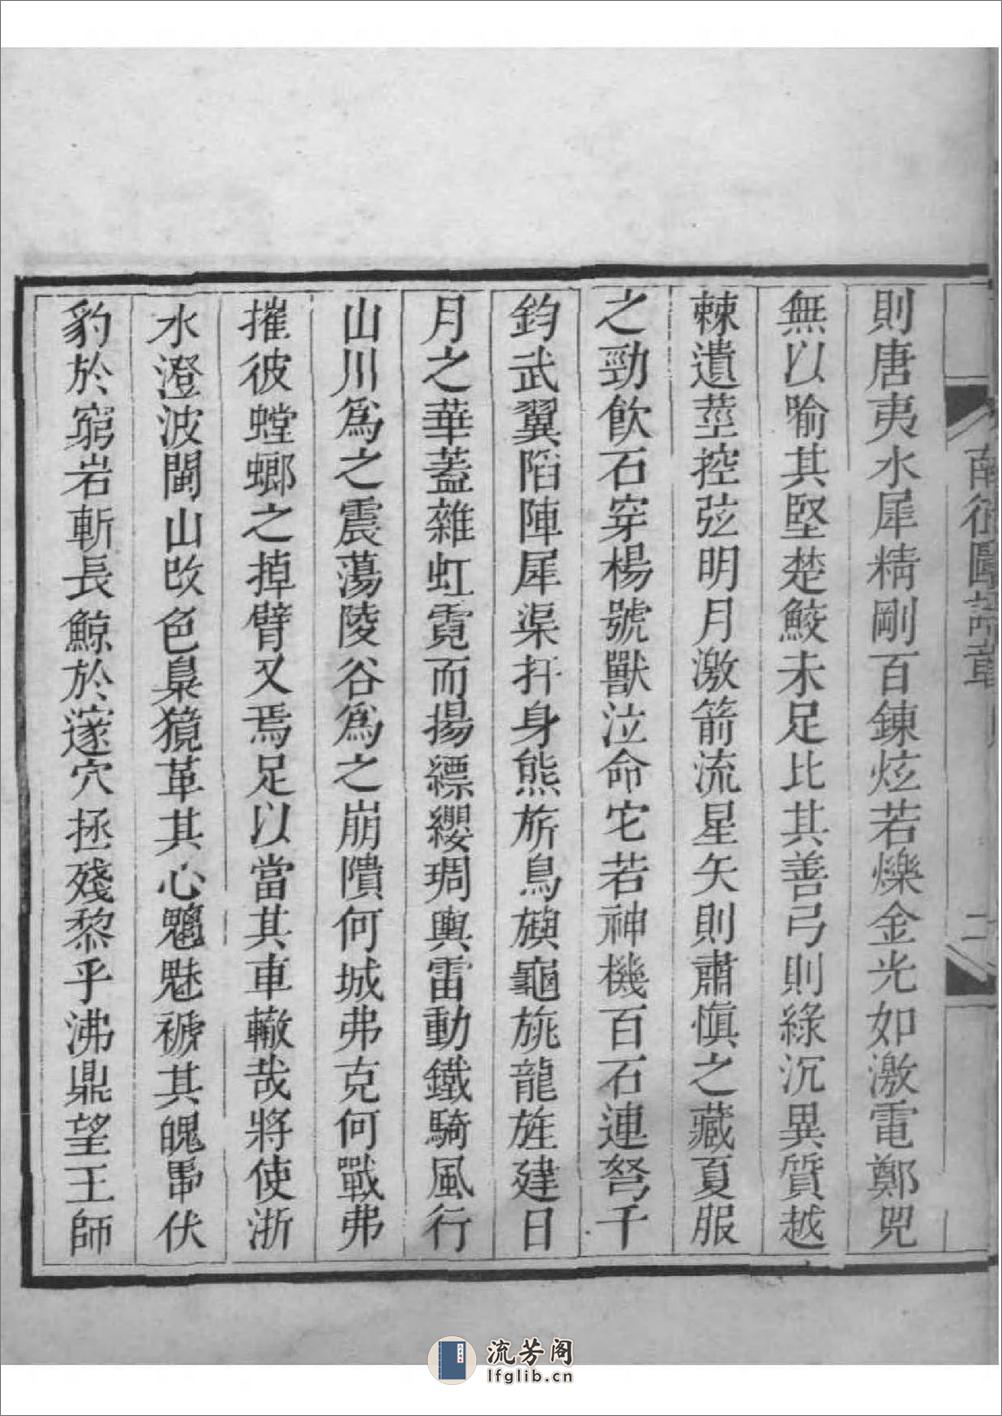 則唐夷水犀精剛百鍊炫若爍金光如激電鄭兕
無以喻其堅楚鮫未足比其善弓則綠沉異質越
棘遺莖控弦明月激箭流星矢則肅慎之藏夏服
之勁飲石穿楊號獸泣命它若神機百石連弩千
鈞武翼䧟陣犀渠扞身熊旂鳥旟龜旐龍旌建日
月之華蓋雜虹霓而揚縹纓琱輿雷動鐵騎風行
山川為之震蕩陵谷為之崩隤何城弗克何戰弗
摧彼螳螂之掉臂又焉足以當其車轍哉將使浙
水澄波閩山改色梟獍革其心魑魅褫其魄禺伏
豹於窮岩斬長鯨於邃穴拯殘黎乎沸鼎望王師
二
流芳阁
lfglib.cn